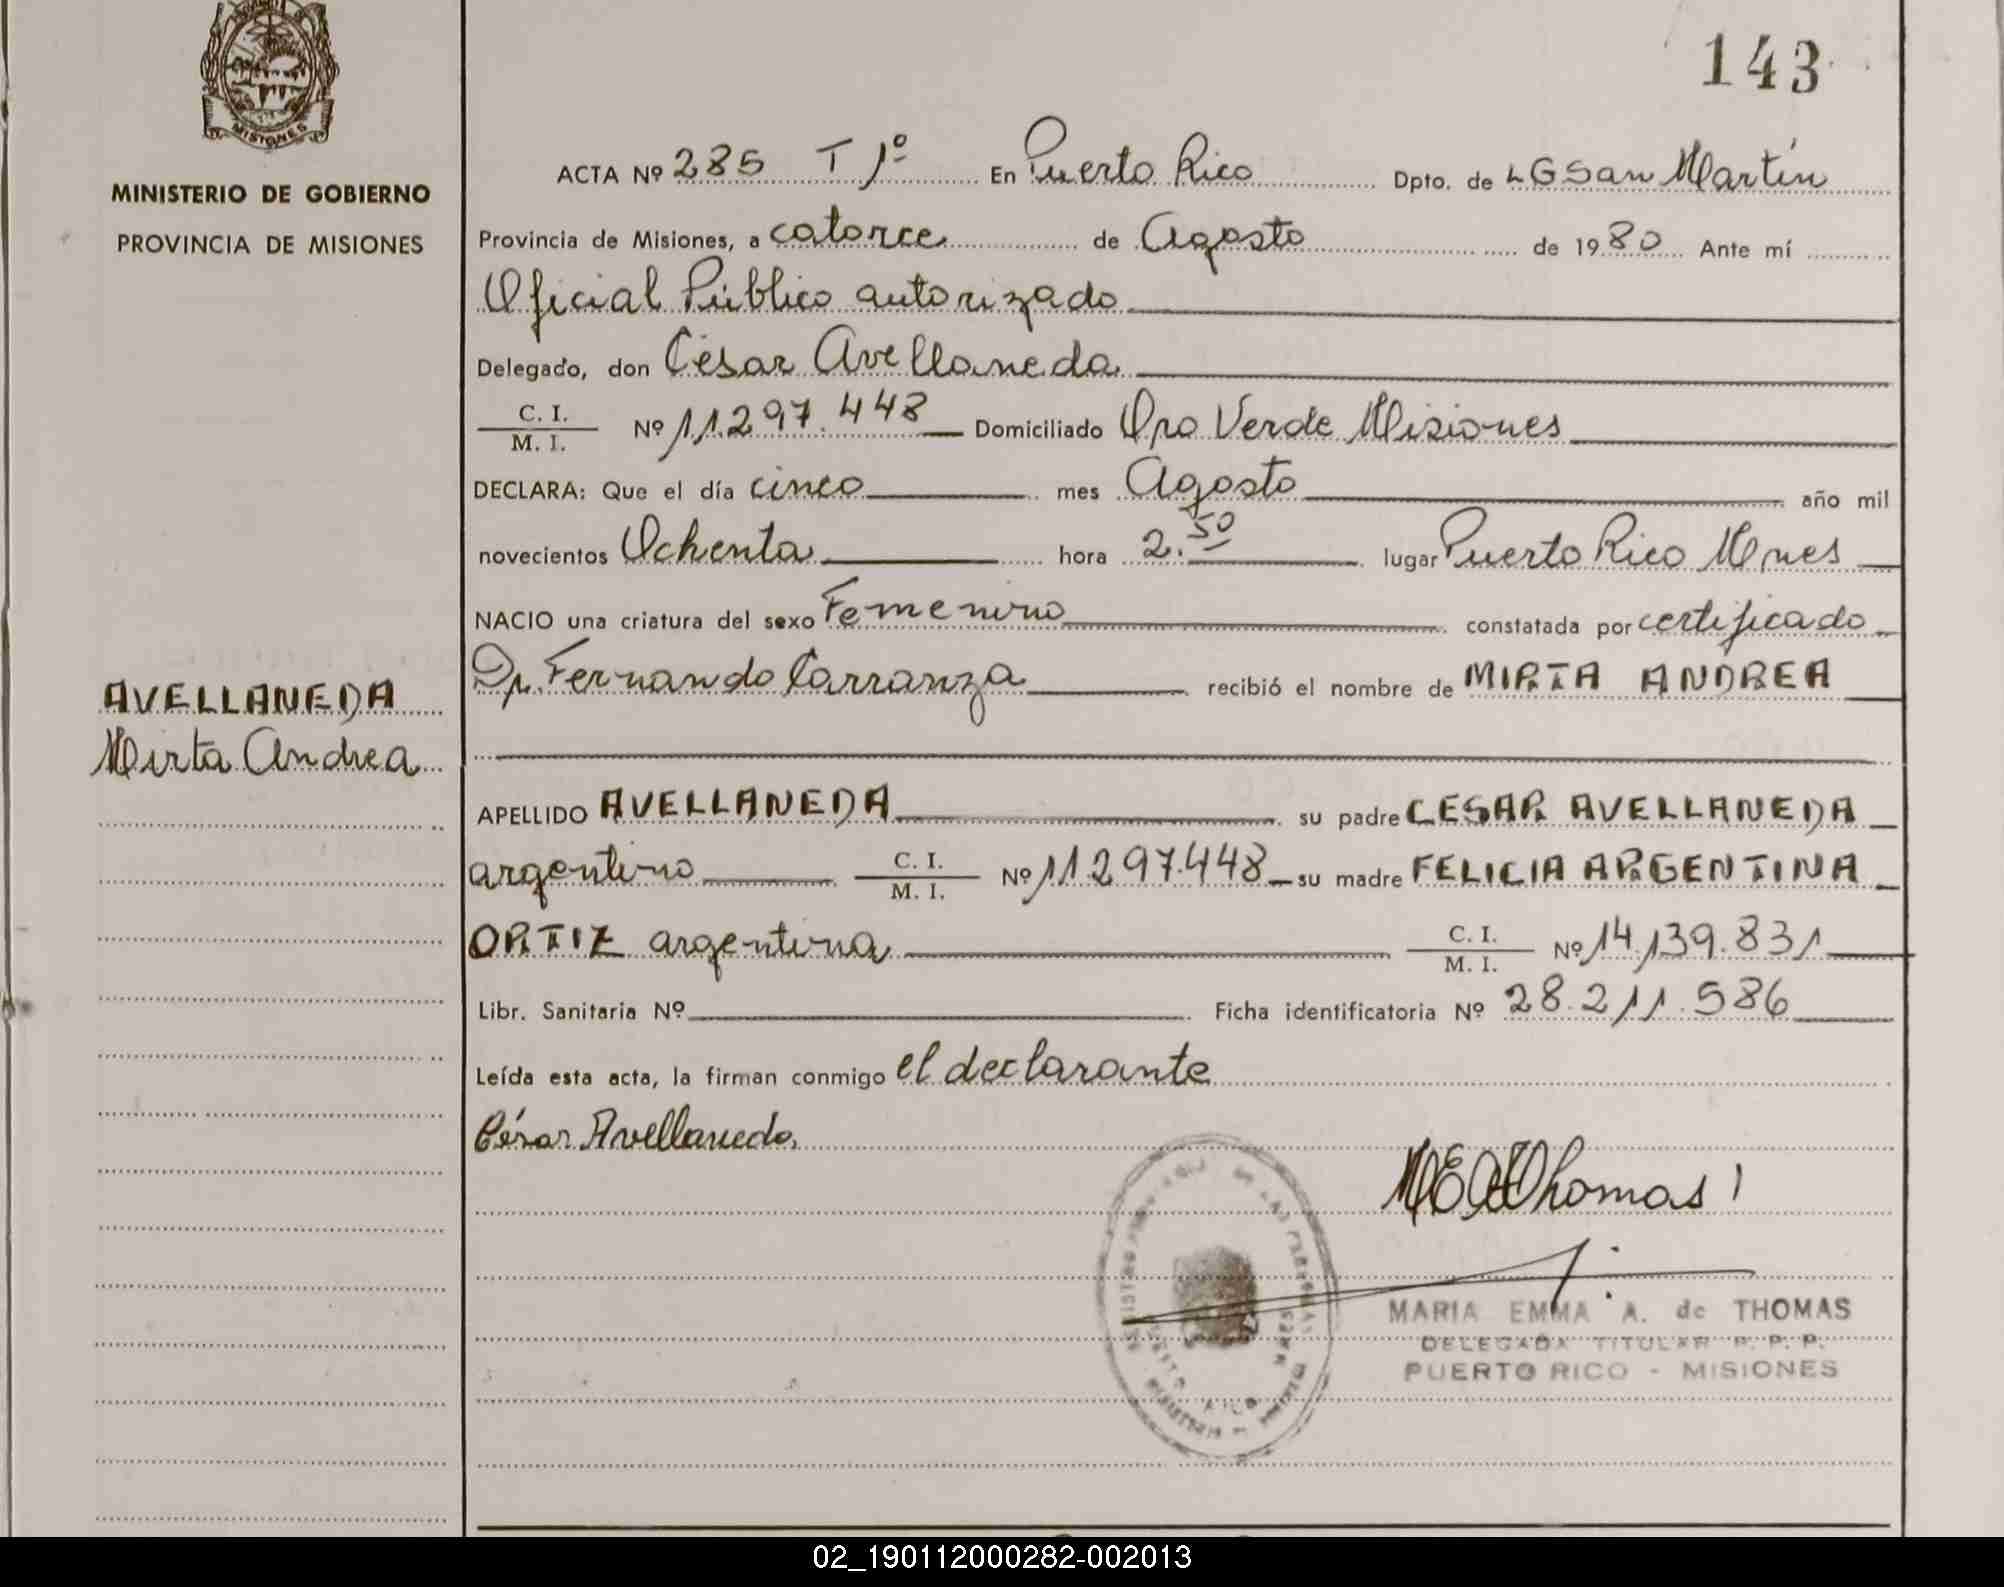 143
MISIONES
MINISTERIO DE GOBIERNO
PROVINCIA DE MISIONES
AVELLANEDA
Mirta Andrea
ACTA Nº 285 T 1º En Puerto Rico Dpto. de LGSan Martín
Provincia de Misiones, a catorce de Agosto de 1980 Ante mí
Oficial Público autorizado
Delegado, don César Avellaneda
C. I. / M. I. Nº 11.297.448 Domiciliado Oro Verde Misiones
DECLARA: Que el día cinco mes Agosto año mil
novecientos Ochenta hora 2.50 lugar Puerto Rico Mnes
NACIO una criatura del sexo Femenino constatada por certificado
Dr. Fernando Carranza recibió el nombre de MIRTA ANDREA
APELLIDO AVELLANEDA su padre CESAR AVELLANEDA
argentino C. I. / M. I. Nº 11.297.448 su madre FELICIA ARGENTINA
ORTIZ argentina C. I. / M. I. Nº 14.139.831
Libr. Sanitaria Nº Ficha identificatoria Nº 28.211.586
Leída esta acta, la firman conmigo el declarante
César Avellaneda
MEAdThomas
MARIA EMMA A. de THOMAS
DELEGADA TITULAR R. P. P.
PUERTO RICO - MISIONES
02_190112000282-002013